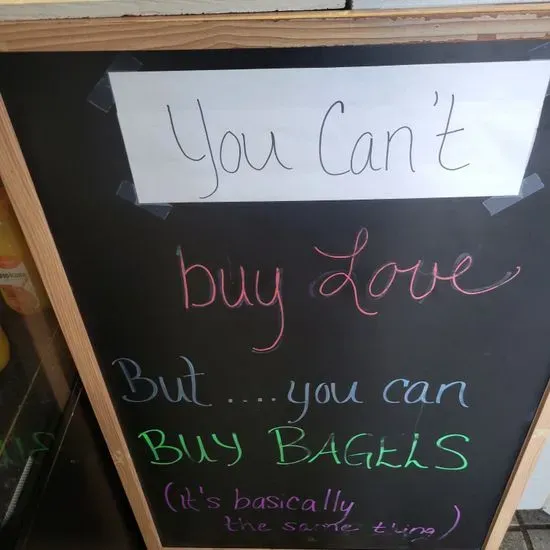 You Can't
buy Love
But .... you can
BUY BAGELS
(it's basically
the same thing)